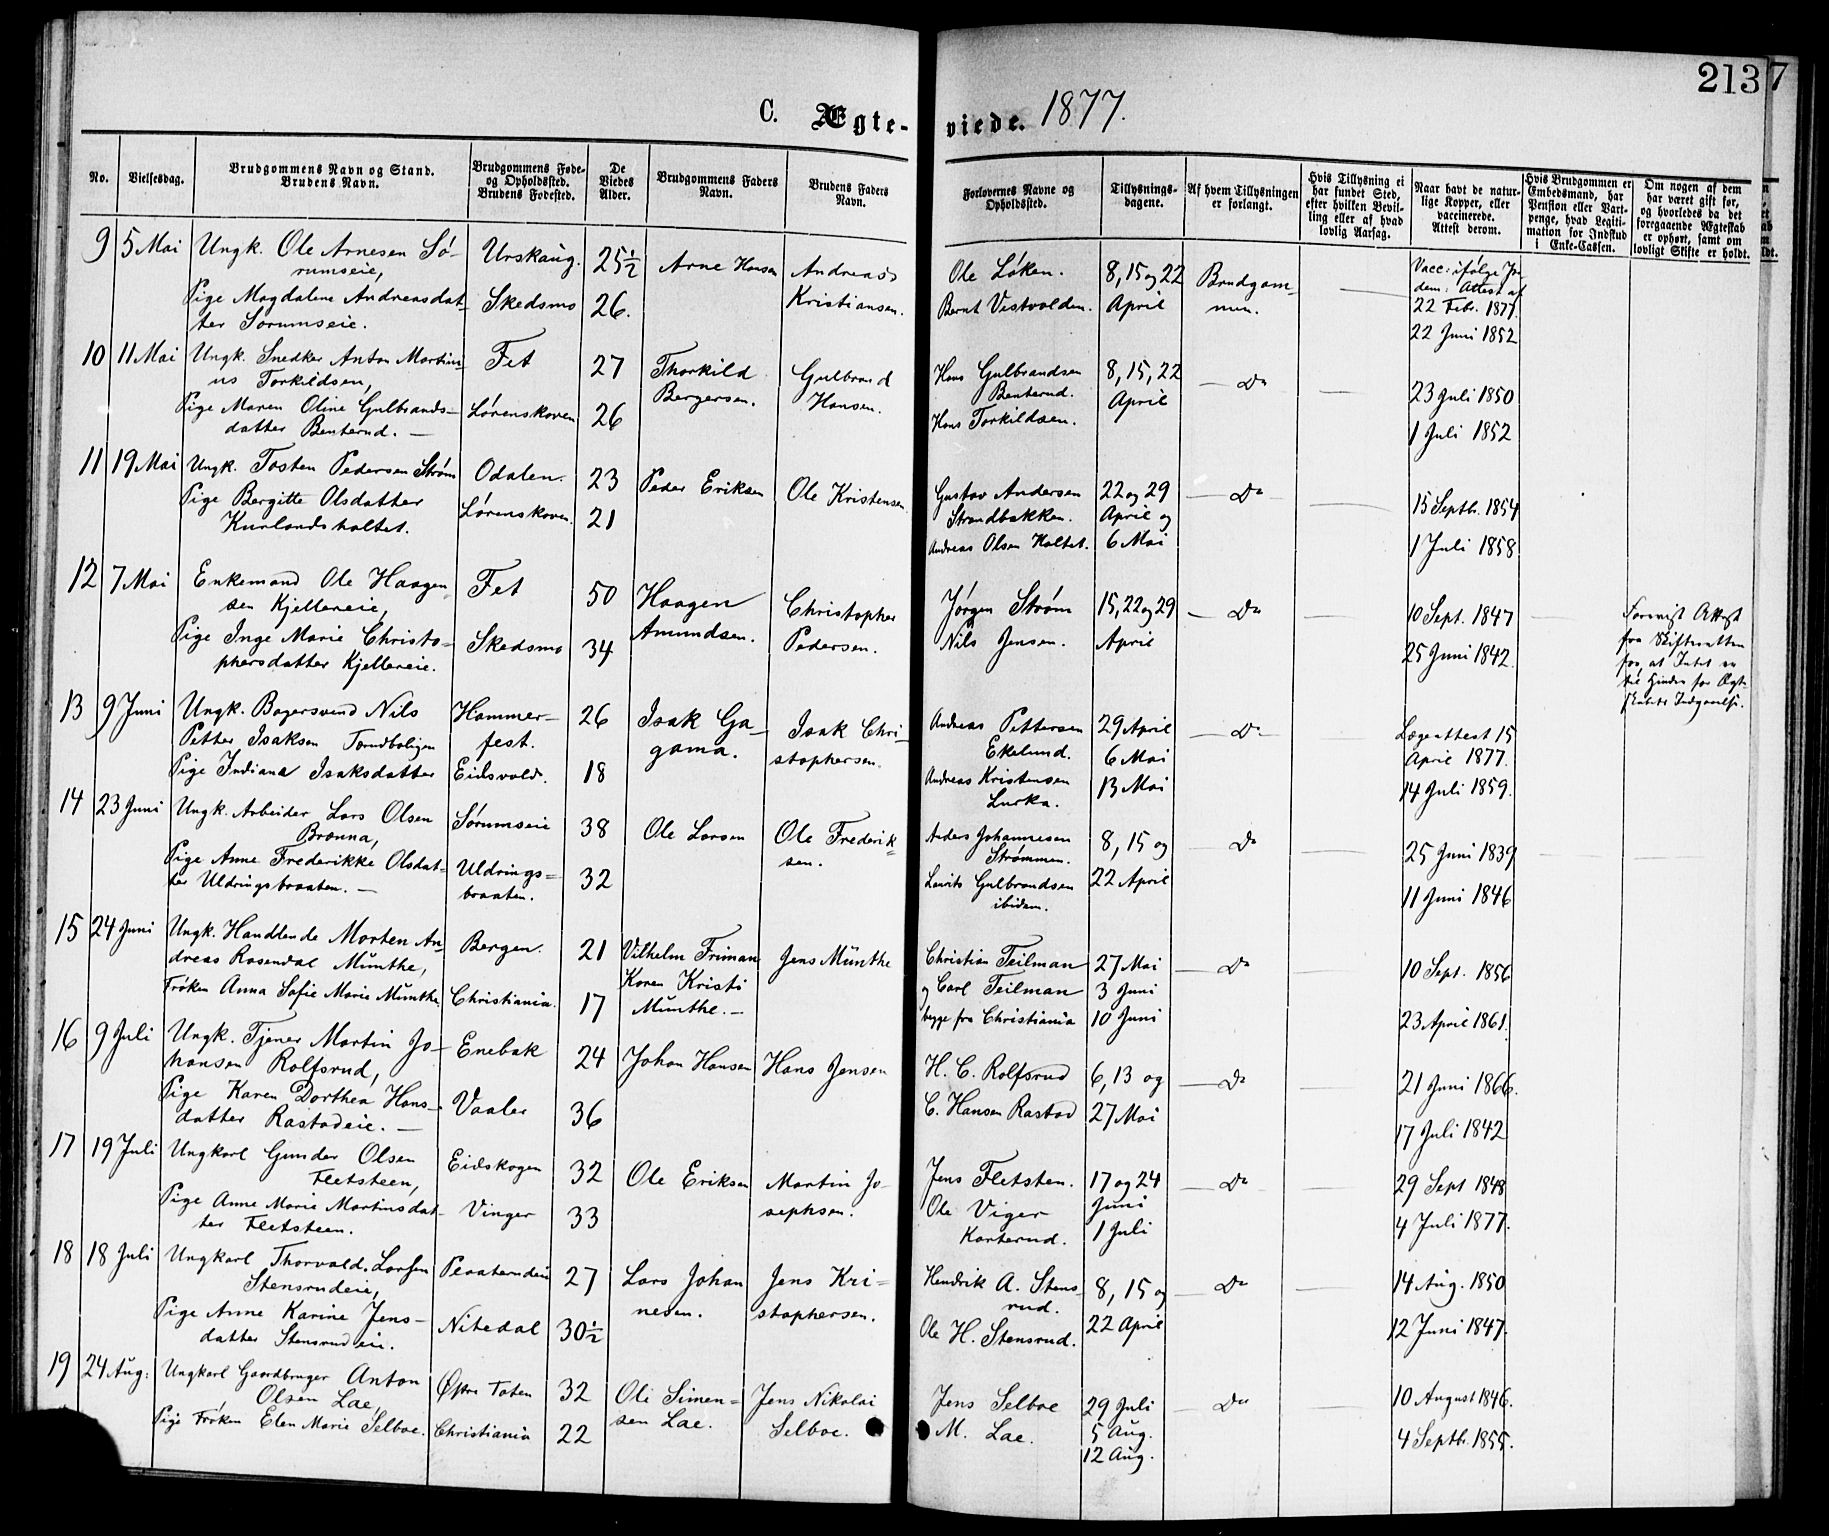 213
7
C. Ægte-viede. 1877.
No.
Vielsesdag.
Brudgommens Navn og Stand.
Brudens Navn.
Brudgommens Føde-
og Opholdssted.
Brudens Fødested.
De
Viedes
Alder.
Brudgommens Faders
Navn.
Brudens Faders
Navn.
Forlovernes Navne og
Opholdssted.
Tillysnings-
dagene.
Af hvem Tillysningen
er forlangt.
Hvis Tillysning ei
har fundet Sted,
efter hvilken Bevil-
ling eller af hvad
lovlig Aarsag.
Naar havt de natur-
lige Kopper, eller
vaccinerede.
Attest derom.
Hvis Brudgommen er
Embedsmand, har
Pension eller Vart-
penge, hvad Legiti-
mation for Indskud
i Enke-Cassen.
Om nogen af dem
har været gift før,
og hvorledes da det
foregaaende Ægteskab
er ophørt, samt om
lovligt Skifte er holdt.
9 5 Mai Ungk. Ole Arnesen Sø-
rumseie,
Pige Magdalene Andreasdat-
ter Sørumseie.
Urskaug.
Skedsmo
25½
26.
Arne Hansen
Andreas
Kristiansen.
Ole Løken.
Bernt Vestvolden.
8, 15 og 22
April
Brudgom-
men.
Vacc: ifølge
Attest af
22 Febr. 1877.
22 Juni 1852
10 11 Mai Ungk. Snedker Anton Martini-
us Torkildsen,
Pige Maren Oline Gulbrands-
datter Benterud. —
Fet
Lørenskoven
27
26
Thorkild
Bergersen.
Gulbrand
Hansen.
Hans Gulbrandsen
Benterud.
Hans Torkildsen.
8, 15, 22
April
— Do
23 Juli 1850
1 Juli 1852
11 19 Mai Ungk. Tosten Pedersen Strøm
Pige Bergitte Olsdatter
Kurlandsholtet.
Odalen.
Lørenskoven.
23
21
Peder Eriksen
Ole Kristensen
Gustav Andersen
Strandbakken.
Andreas Olsen Holtet.
22 og 29
April og
6 Mai
— Do
15 Septb. 1854
1 Juli 1858
12 7 Mai Enkemand Ole Haagen
sen Kjellereie,
Pige Inge Marie Christo-
phersdatter Kjellereie.
Fet
Skedsmo
50
34
Haagen
Amundsen.
Christopher
Pedersen.
Jørgen Strøm
Nils Jensen.
15, 22 og 29
April
— Do
10 Sept. 1847
25 Juni 1842.
Forevist Attest
fra Skifteretten
for, at Intet er
til Hinder for Ægte-
skabets Indgaaelse.
13 9 Juni Ungk. Bagersvend Nils
Petter Isaksen
Pige Indiana Isaksdatter
Hammer-
fest.
Eidsvold.
26
18
Isak Ga-
gama.
Isak Chri-
stophersen.
Andreas Pettersen
Ekelund.
Andreas Kristensen
Lurka.
29 April
6 Mai
13 Mai
— Do
Lægeattest 15
April 1877.
14 Juli 1859.
14 23 Juni Ungk. Arbeider Lars Olsen
Brønna,
Pige Anne Frederikke Olsdat-
ter Uldringsbraaten. —
Sørumseie
Uldrings-
braaten.
38
32
Ole Larsen
Ole Frederik-
sen.
Anders Johannesen
Strømmen.
Laurits Gulbrandsen
ibidem.
8, 15 og
22 April
Do
25 Juni 1839
11 Juni 1846
15 24 Juni Ungk. Handlende Morten An-
dreas Rosendal Münthe,
Frøken Anna Sofie Marie Münthe.
Bergen.
Christiania.
21
17
Vilhelm Friman
Koren Kristi
Münthe. —
Jens Münthe
Christian Teilman
og Carl Teilman
begge fra Christiania
27 Mai
3 Juni
10 Juni
— Do
10 Sept. 1856
23 April 1861.
16 9 Juli Ungk. Tjener Martin Jo-
hansen Rolfsrud,
Pige Karen Dorthea Hans-
datter Rastadeie. —
Enebak
Vaaler
24
36
Johan Hansen
Hans Jensen
H. C. Rolfsrud
C. Hansen Rastad
6, 13 og
27 Mai
— Do
21 Juni 1866.
17 Juli 1842
17 19 Juli Ungkarl Gunder Olsen
Fletsteen,
Pige Anne Marie Martinsdat-
ter Fletsteen.
Eidskogen
Vinger
32
33
Ole Eriksen
Martin Jo-
sephsen.
Jens Fletsten.
Ole Viger
Karterud.
17 og 24
Juni
1 Juli
— Do
29 Sept 1848
4 Juli 1877.
18 18 Juli Ungkarl Thorvald Larsen
Stensrudeie,
Pige Anne Karine Jens-
datter Stensrudeie.
Nitedal
27
30½
Lars Johan
nesen.
Jens Kri-
stophersen.
Hendrik A. Stens
rud.
Ole H. Stensrud.
8, 15 og
22 April
Do
14 Aug. 1850
12 Juni 1847.
19 24 Aug: Ungkarl Gaardbruger Anton
Olsen Lae,
Pige Frøken Elen Marie Selboe.
Østre Toten
Christiania
32
22
Ole Simen-
sen Lae.
Jens Nikolai
Selboe.
Jens Selboe
M. Lae.
29 Juli
5 Aug.
12 Aug.
— Do
10 August 1846.
4 Septb. 1855.